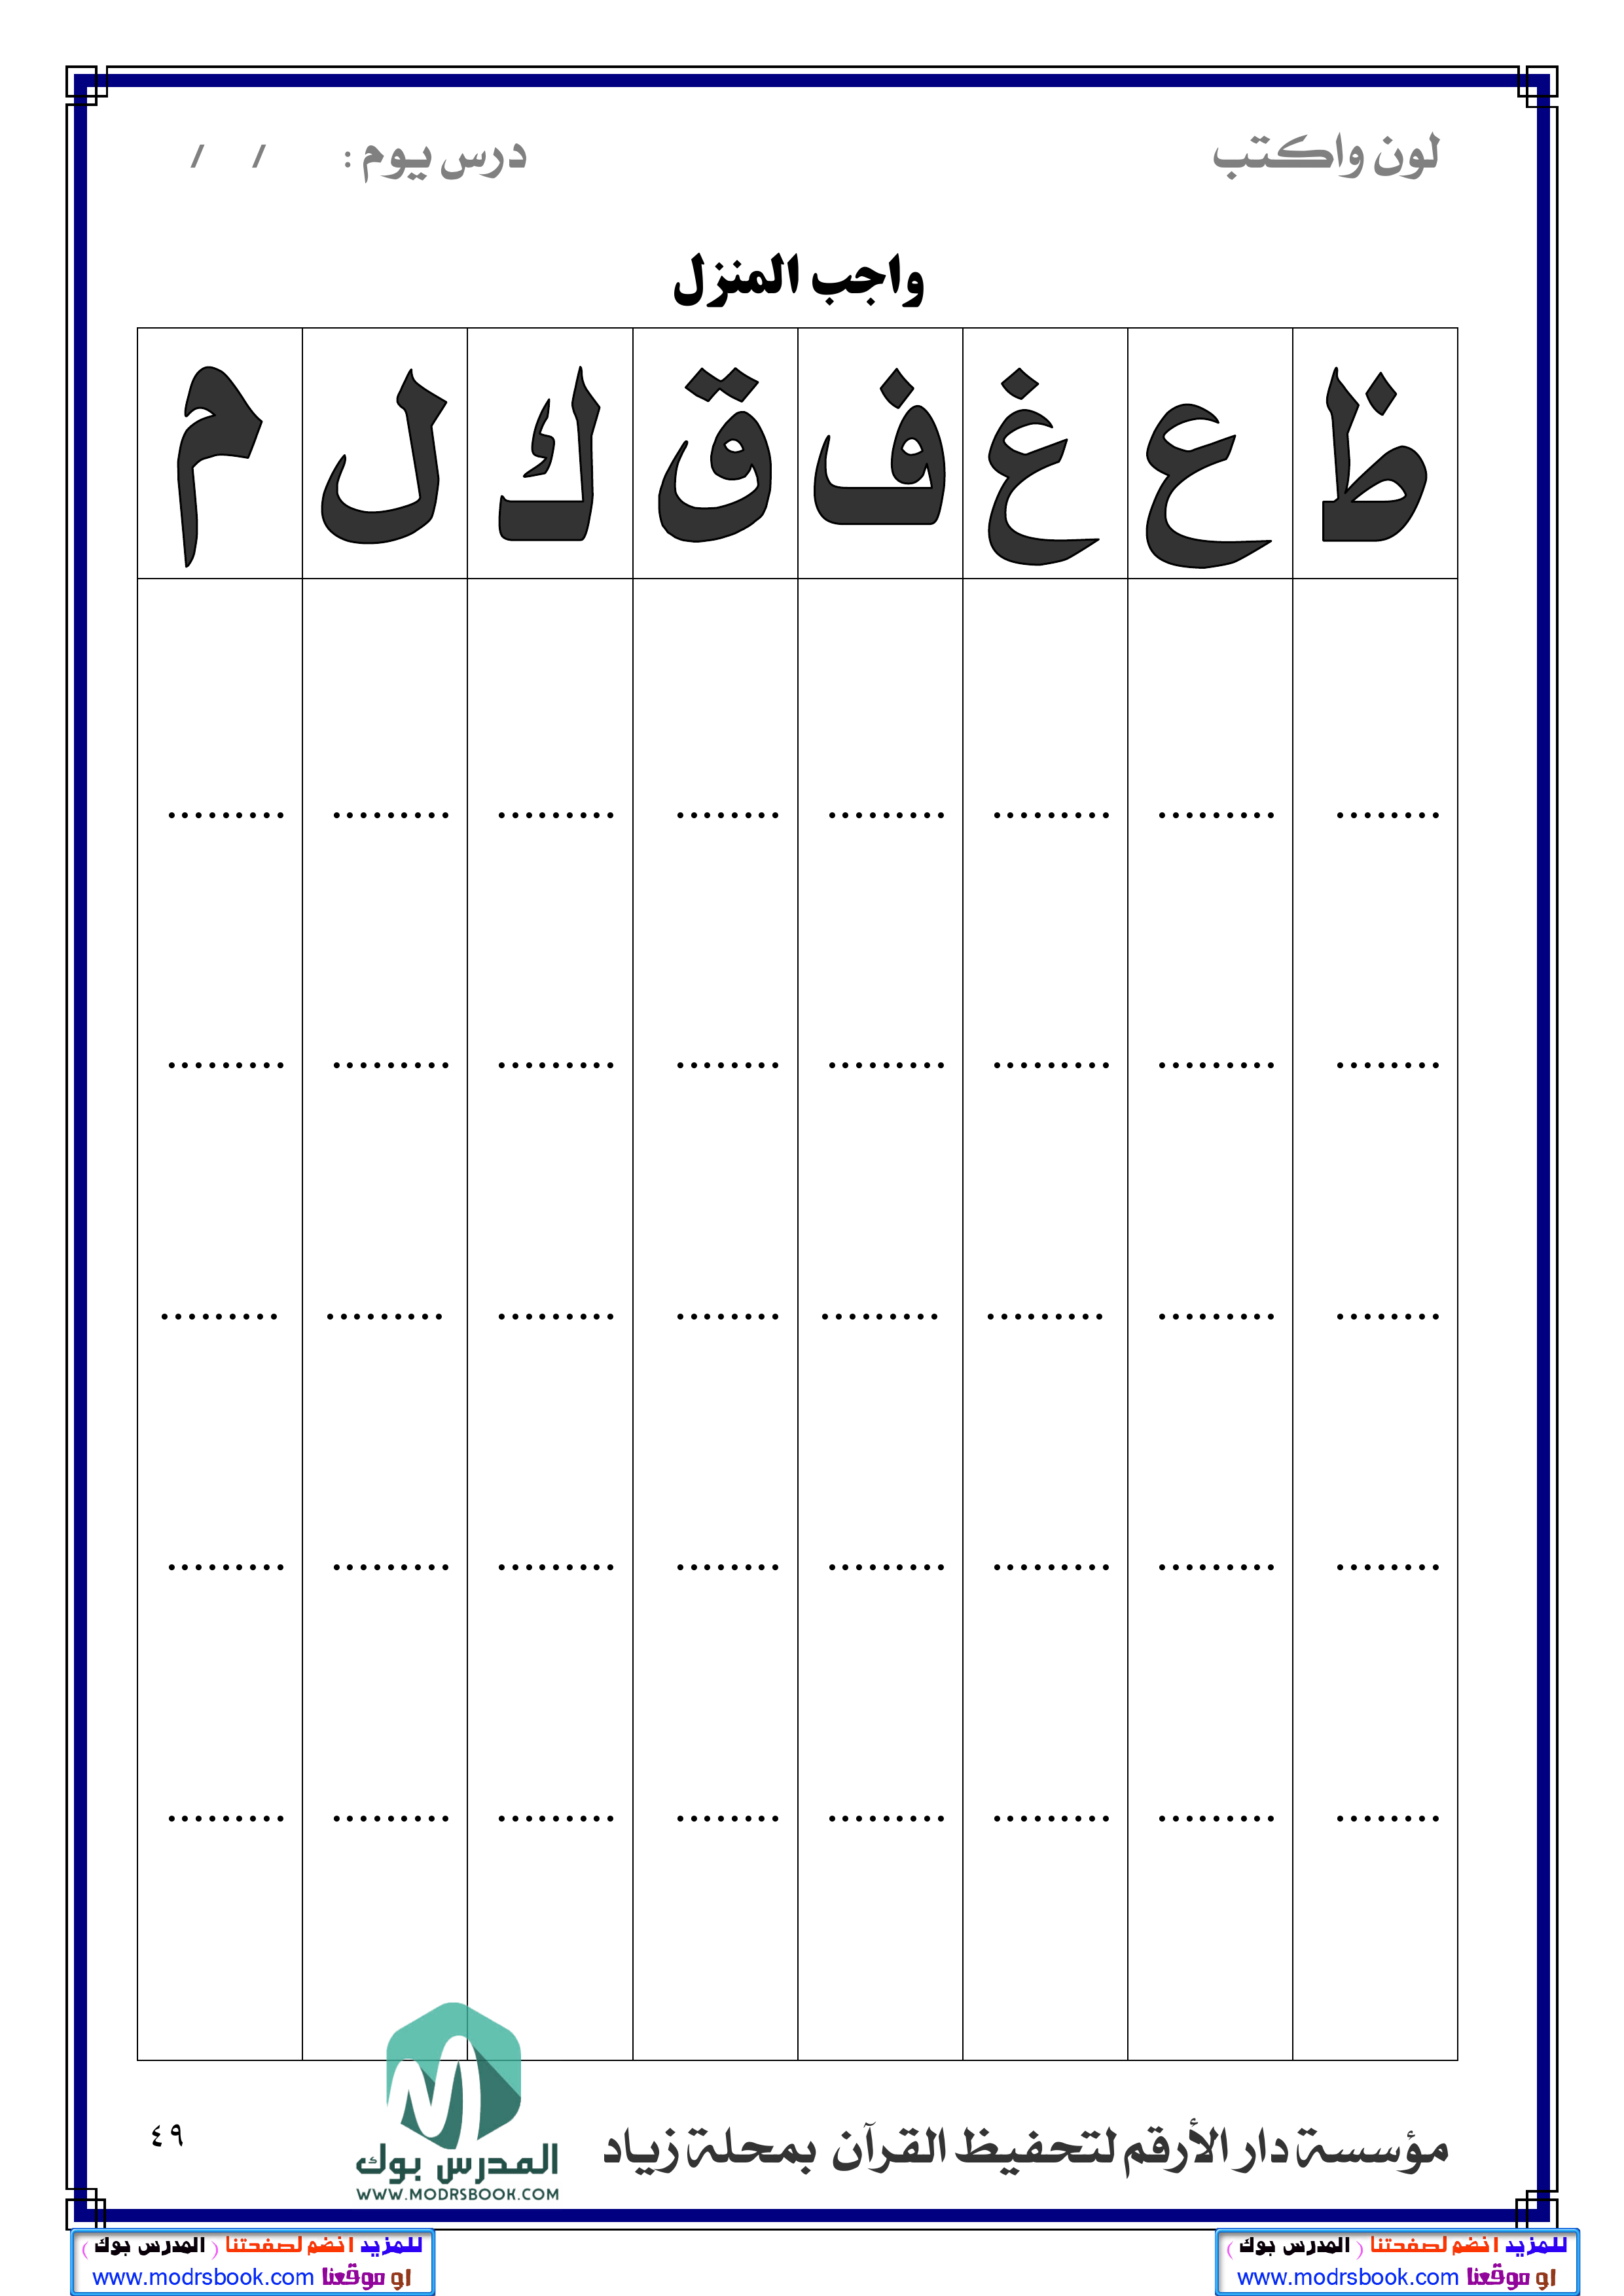 لون واكتب درس يوم : / /
واجب المنزل
ظ ع غ ف ق ك ل م
........ ......... ......... ......... ........ ......... ......... .........
........ ......... ......... ......... ........ ......... ......... .........
........ ......... ......... ......... ........ ......... ......... .........
........ ......... ......... ......... ........ ......... ......... .........
........ ......... ......... ......... ........ ......... ......... .........
مؤسسة دار الأرقم لتحفيظ القرآن بمحلة زياد
٤٩
المدرس بوك
WWW.MODRSBOOK.COM
للمزيد انضم لصفحتنا ( المدرس بوك )
او موقعنا www.modrsbook.com
للمزيد انضم لصفحتنا ( المدرس بوك )
او موقعنا www.modrsbook.com